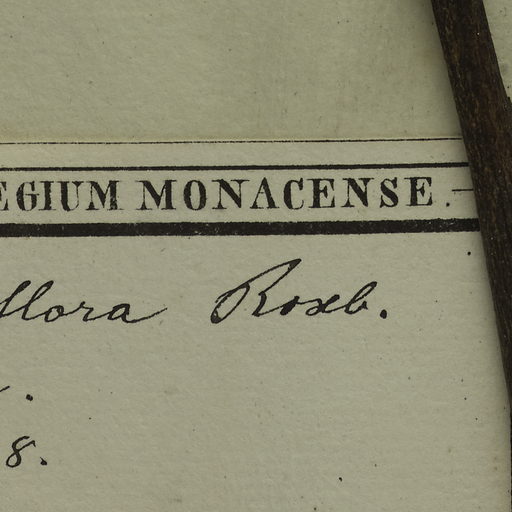 EGIUM MONACENSE.—
flora Roxb.
.
8.